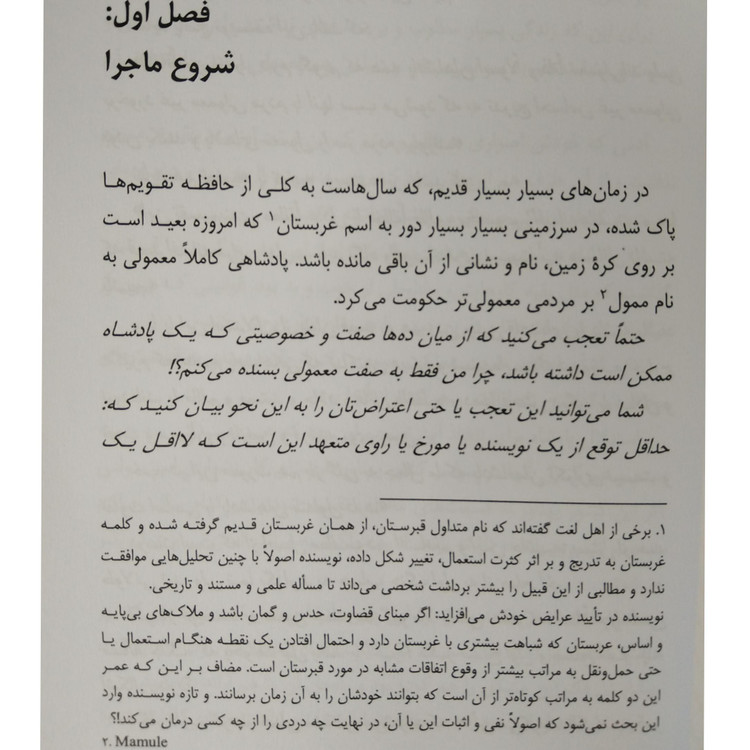 فصل اول:
شروع ماجرا
در زمان‌های بسیار بسیار قدیم، که سال‌هاست به کلی از حافظه تقویم‌ها
پاک شده، در سرزمینی بسیار بسیار دور به اسم غربستان۱ که امروزه بعید است
بر روی کرۀ زمین، نام و نشانی از آن باقی مانده باشد. پادشاهی کاملاً معمولی به
نام ممول۲ بر مردمی معمولی‌تر حکومت می‌کرد.
حتماً تعجب می‌کنید که از میان ده‌ها صفت و خصوصیتی که یک پادشاه
ممکن است داشته باشد، چرا من فقط به صفت معمولی بسنده می‌کنم؟!
شما می‌توانید این تعجب یا حتی اعتراض‌تان را به این نحو بیان کنید که:
حداقل توقع از یک نویسنده یا مورخ یا راوی متعهد این است که لااقل یک
۱. برخی از اهل لغت گفته‌اند که نام متداول قبرستان، از همان غربستان قدیم گرفته شده و کلمه
غربستان به تدریج و بر اثر کثرت استعمال، تغییر شکل داده، نویسنده اصولاً با چنین تحلیل‌هایی موافقت
ندارد و مطالبی از این قبیل را بیشتر برداشت شخصی می‌داند تا مسأله علمی و مستند و تاریخی.
نویسنده در تأیید عرایض خودش می‌افزاید: اگر مبنای قضاوت، حدس و گمان باشد و ملاک‌های بی‌پایه
و اساس، عربستان که شباهت بیشتری با غربستان دارد و احتمال افتادن یک نقطه هنگام استعمال یا
حتی حمل‌ونقل به مراتب بیشتر از وقوع اتفاقات مشابه در مورد قبرستان است. مضاف بر این که عمر
این دو کلمه به مراتب کوتاه‌تر از آن است که بتوانند خودشان را به آن زمان برسانند. و تازه نویسنده وارد
این بحث نمی‌شود که اصولاً نفی و اثبات این یا آن، در نهایت چه دردی را از چه کسی درمان می‌کند!؟
۲. Mamule